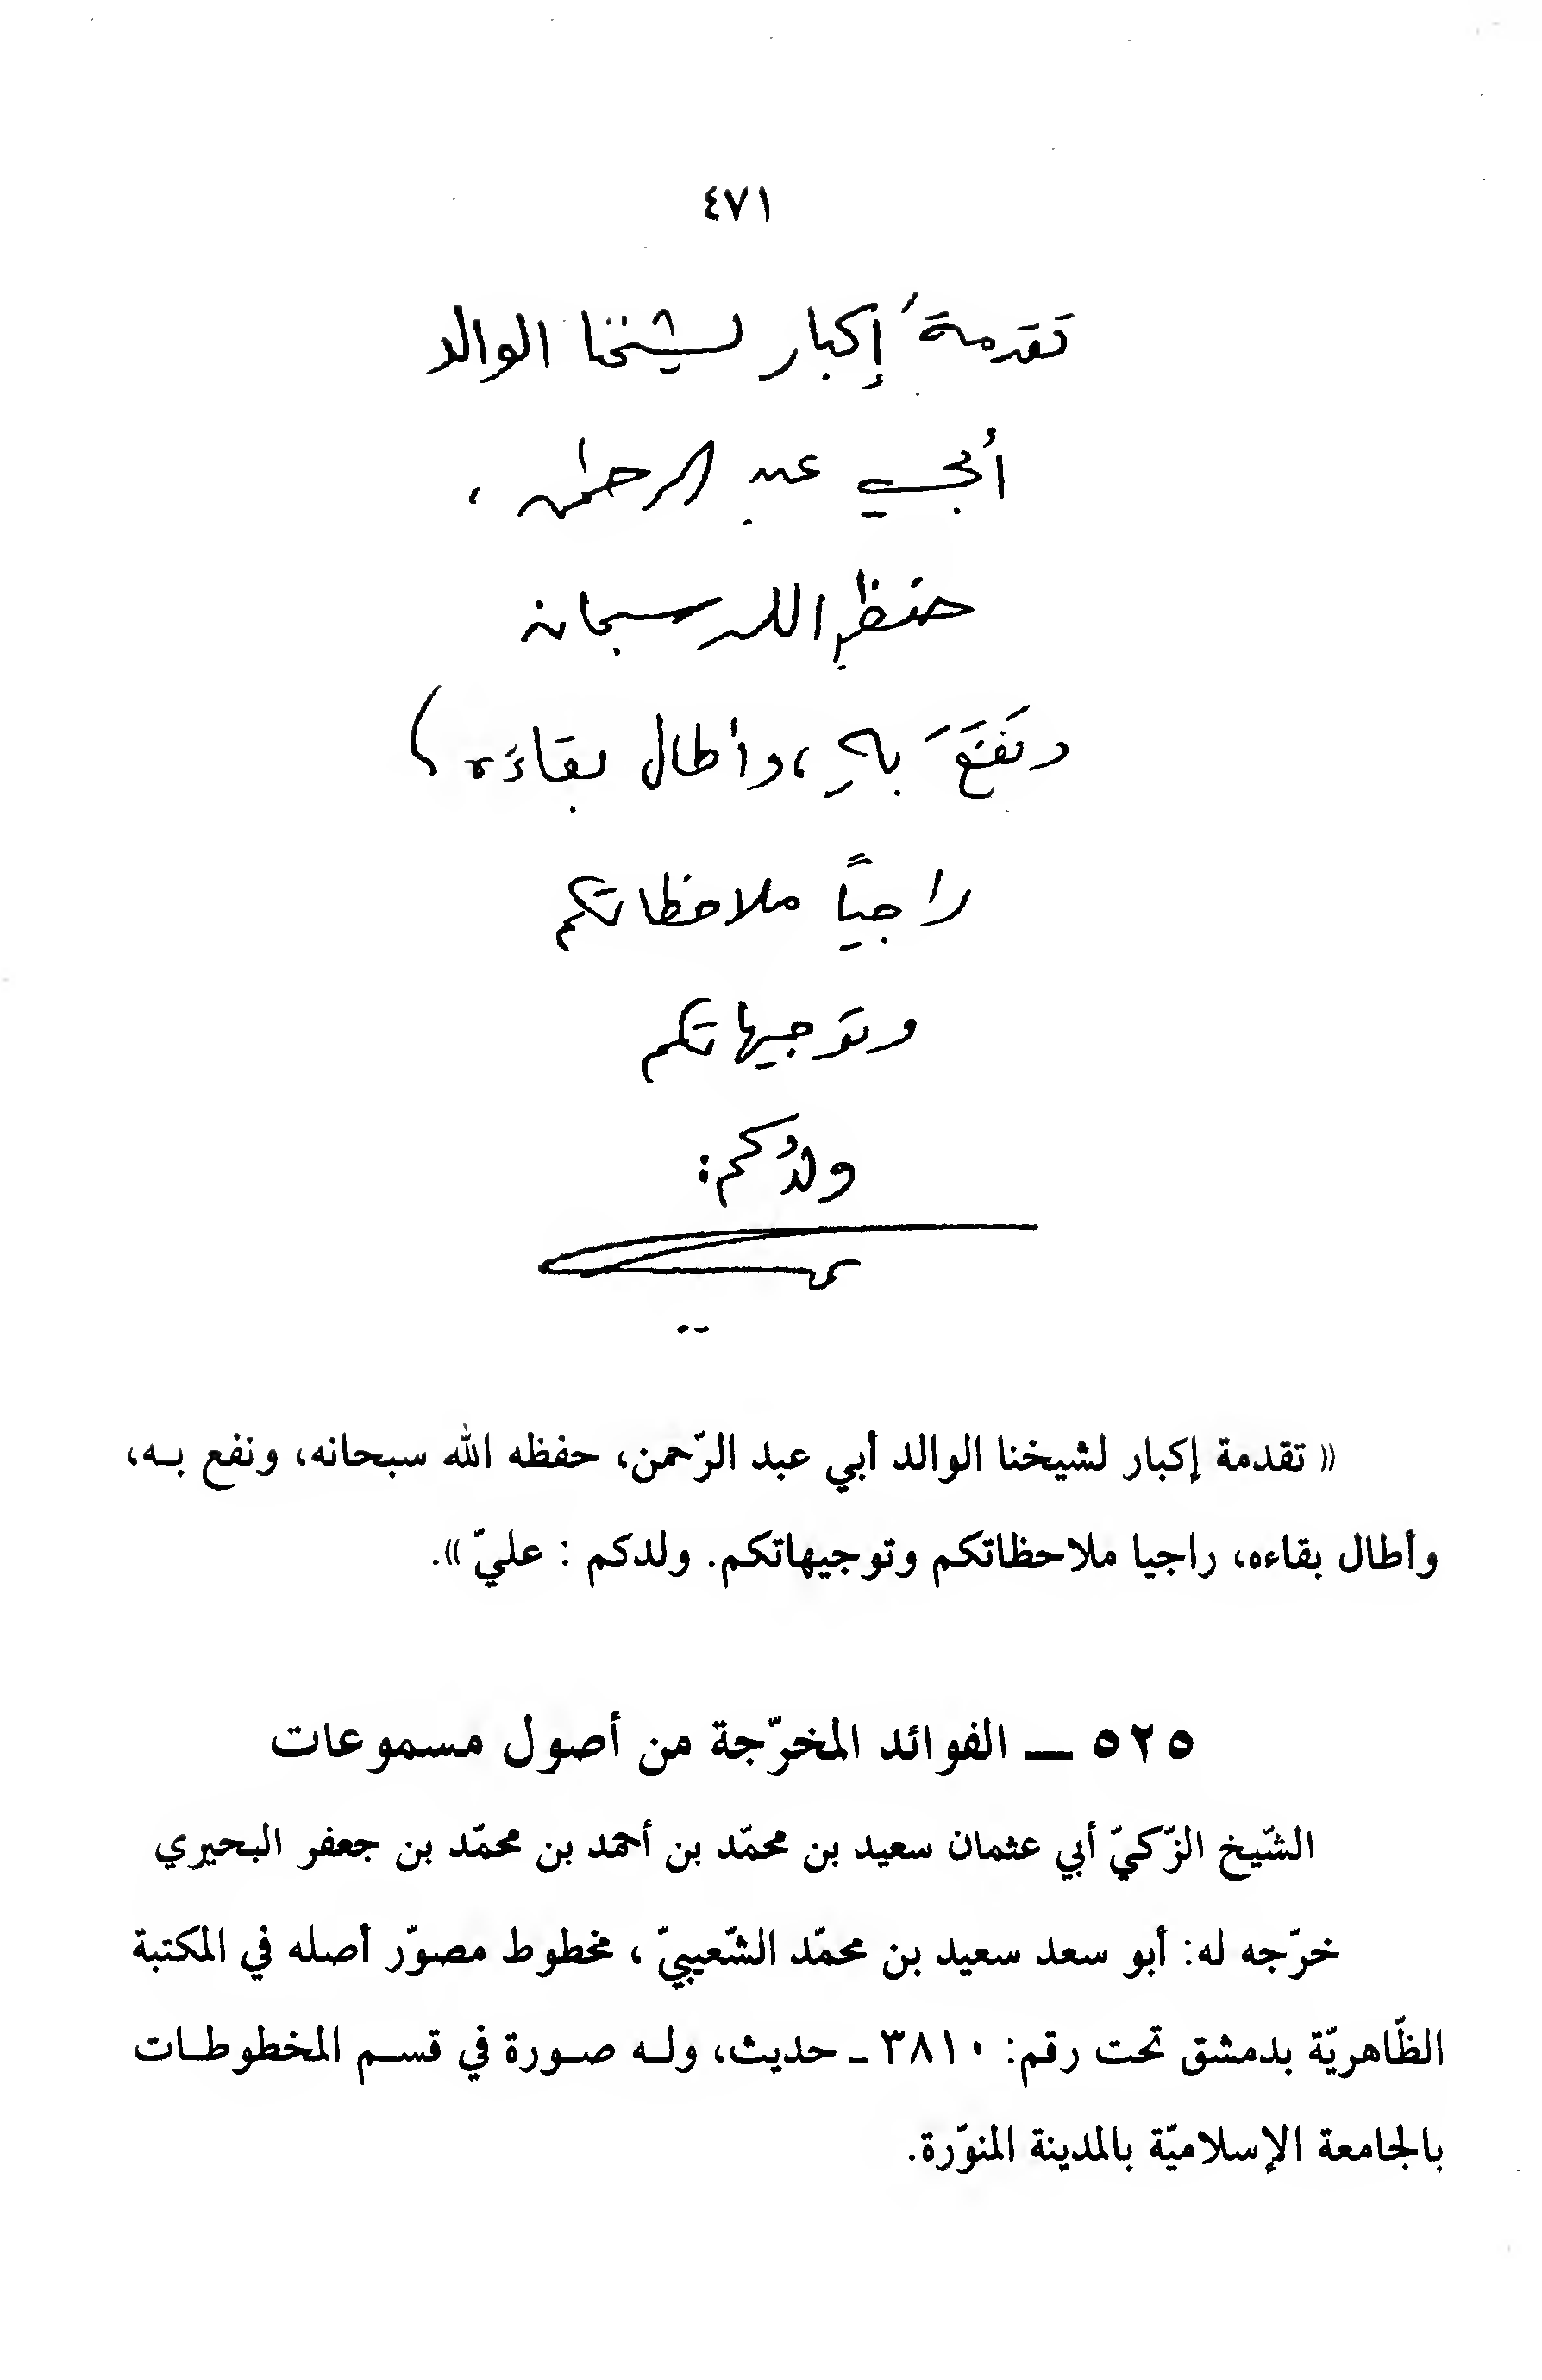 ٤٧١
تقدمةُ إكبار لشيخنا الوالد
أبي عبد الرحمٰن ،
حفظهِ الله سبحانه
ونَفَعَ بهِ ، وأطال بقاءَه )
راجياً ملاحظاتكم
وتوجيهاتكم
ولدُكم :
علي
(( تقدمة إكبار لشيخنا الوالد أبي عبد الرّحمن، حفظه الله سبحانه، ونفع بـه،
وأطال بقاءه، راجيا ملاحظاتكم وتوجيهاتكم. ولدكم : عليّ )).
٥٢٥ ــ الفوائد المخرّجة من أصول مسموعات
الشّيخ الزّكيّ أبي عثمان سعيد بن محمّد بن أحمد بن محمّد بن جعفر البحيري
خرّجه له: أبو سعد سعيد بن محمّد الشّعيبيّ ، مخطوط مصوّر أصله في المكتبة
الظّاهريّة بدمشق تحت رقم: ٣٨١٠ ـ حديث، ولـه صـورة في قسـم المخطوطـات
بالجامعة الإسلاميّة بالمدينة المنوّرة.